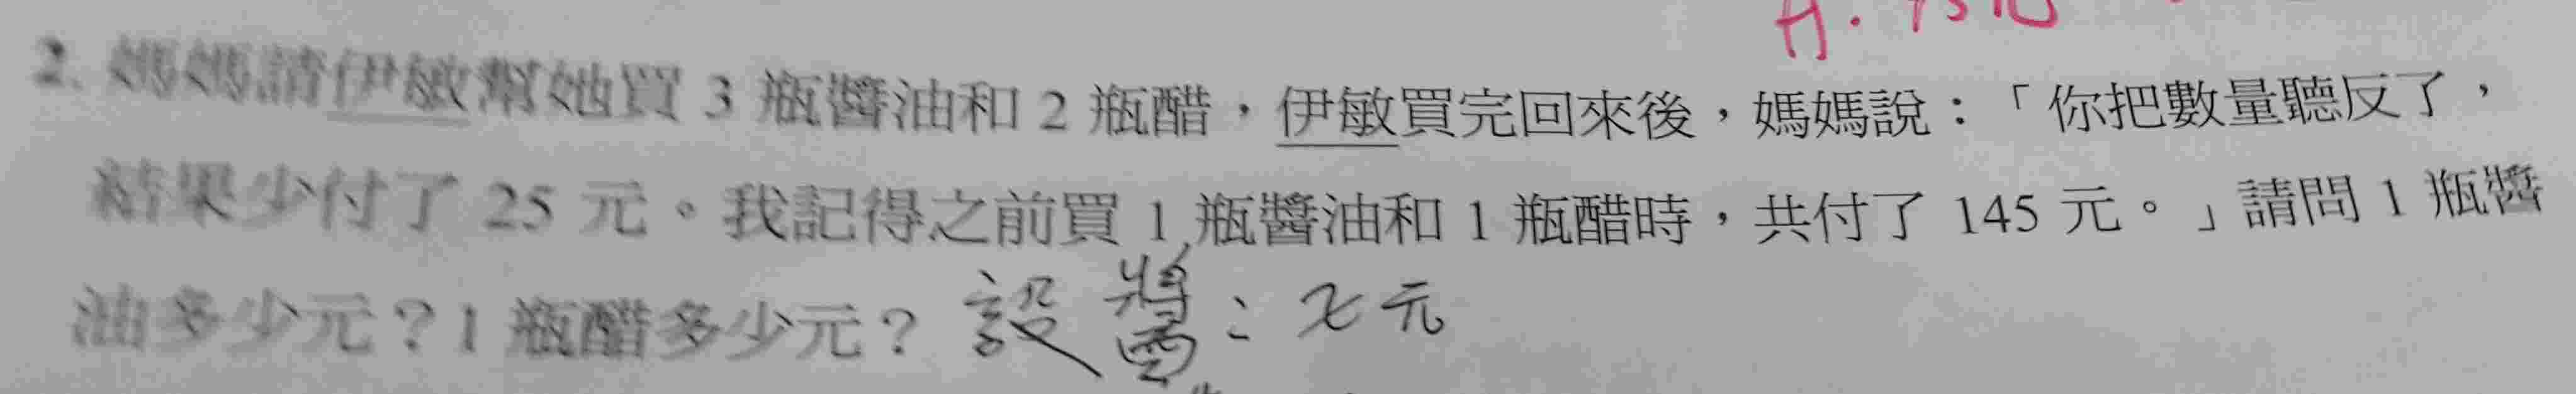 2. 媽媽請伊敏幫她買 3 瓶醬油和 2 瓶醋，伊敏買完回來後，媽媽說：「你把數量聽反了，
結果少付了 25 元。我記得之前買 1 瓶醬油和 1 瓶醋時，共付了 145 元。」請問 1 瓶醬
油多少元？1 瓶醋多少元？ 設 醬：x元